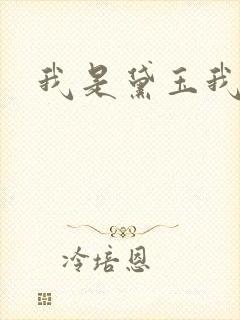 我是黛玉我
冷培恩